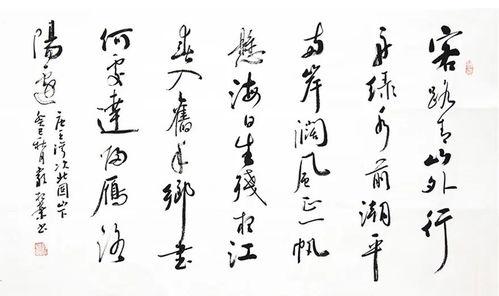 客路青山外行
舟綠水前潮平
兩岸闊風正一帆
懸海日生殘夜江
春入舊年鄉書
何處達歸雁洛
陽邊
唐王灣次北固山下
癸巳秋月書